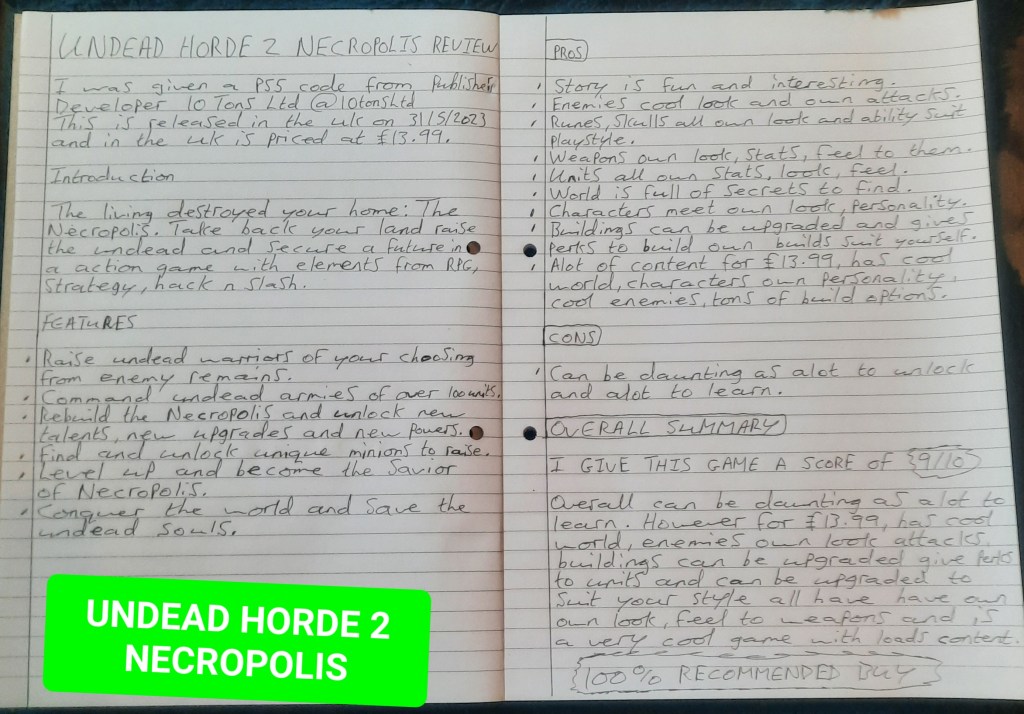 UNDEAD HORDE 2 NECROPOLIS REVIEW
I was given a PS5 code from Publisher
Developer 10 Tons Ltd @10tonsLtd
This is released in the uk on 31/5/2023
and in the uk is priced at £13.99.
Introduction
The living destroyed your home: The
Necropolis. Take back your land raise
the undead and secure a future in
a action game with elements from RPG,
Strategy, hack n slash.
FEATURES
• Raise undead warriors of your choosing
from enemy remains.
• Command undead armies of over 100 units.
• Rebuild the Necropolis and unlock new
talents, new upgrades and new powers.
• Find and unlock unique minions to raise.
• Level up and become the savior
of Necropolis.
• Conquer the world and save the
undead souls.
UNDEAD HORDE 2
NECROPOLIS
PROS
• Story is fun and interesting.
• Enemies cool look and own attacks.
• Runes, Skulls all own look and ability suit
playstyle.
• Weapons own look, stats, feel to them.
• Units all own stats, look, feel.
• World is full of secrets to find.
• Characters meet own look, personality.
• Buildings can be upgraded and gives
perks to build own builds suit yourself.
• Alot of content for £13.99, has cool
world, characters own personality,
cool enemies, tons of build options.
CONS
• Can be daunting as alot to unlock
and alot to learn.
OVERALL SUMMARY
I GIVE THIS GAME A SCORE OF {9/10}
Overall can be daunting as alot to
learn. However for £13.99, has cool
world, enemies own look attacks,
buildings can be upgraded give perks
to units and can be upgraded to
suit your style all have have own
own look, feel to weapons and is
a very cool game with loads content.
{100% RECOMMENDED BUY}